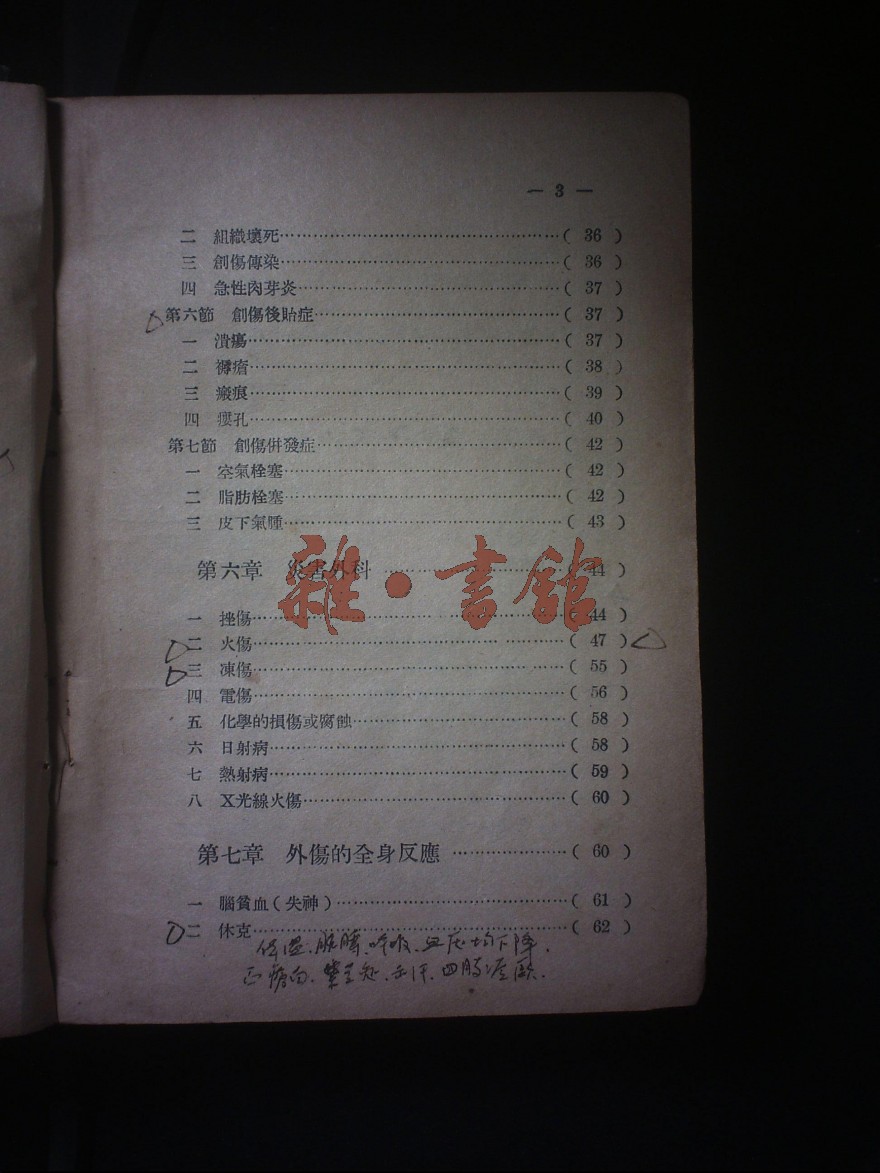 — 3 —
二 組織壞死……………………………( 36 )
三 創傷傳染……………………………( 36 )
四 急性肉芽炎…………………………( 37 )
第六節 創傷後貽症……………………( 37 )
一 潰瘍…………………………………( 37 )
二 褥瘡…………………………………( 38 )
三 瘢痕…………………………………( 39 )
四 瘻孔…………………………………( 40 )
第七節 創傷併發症……………………( 42 )
一 空氣栓塞……………………………( 42 )
二 脂肪栓塞……………………………( 42 )
三 皮下氣腫……………………………( 43 )
第六章 災害外科 ……………………( 44 )
雜·書館
一 挫傷…………………………………( 44 )
二 火傷…………………………………( 47 )
三 凍傷…………………………………( 55 )
四 電傷…………………………………( 56 )
五 化學的損傷或腐蝕…………………( 58 )
六 日射病………………………………( 58 )
七 熱射病………………………………( 59 )
八 X光線火傷…………………………( 60 )
第七章 外傷的全身反應 ……………( 60 )
一 腦貧血(失神)……………………( 61 )
二 休克…………………………………( 62 )
体温、脈搏、呼吸、血压均下降、
四肢厥